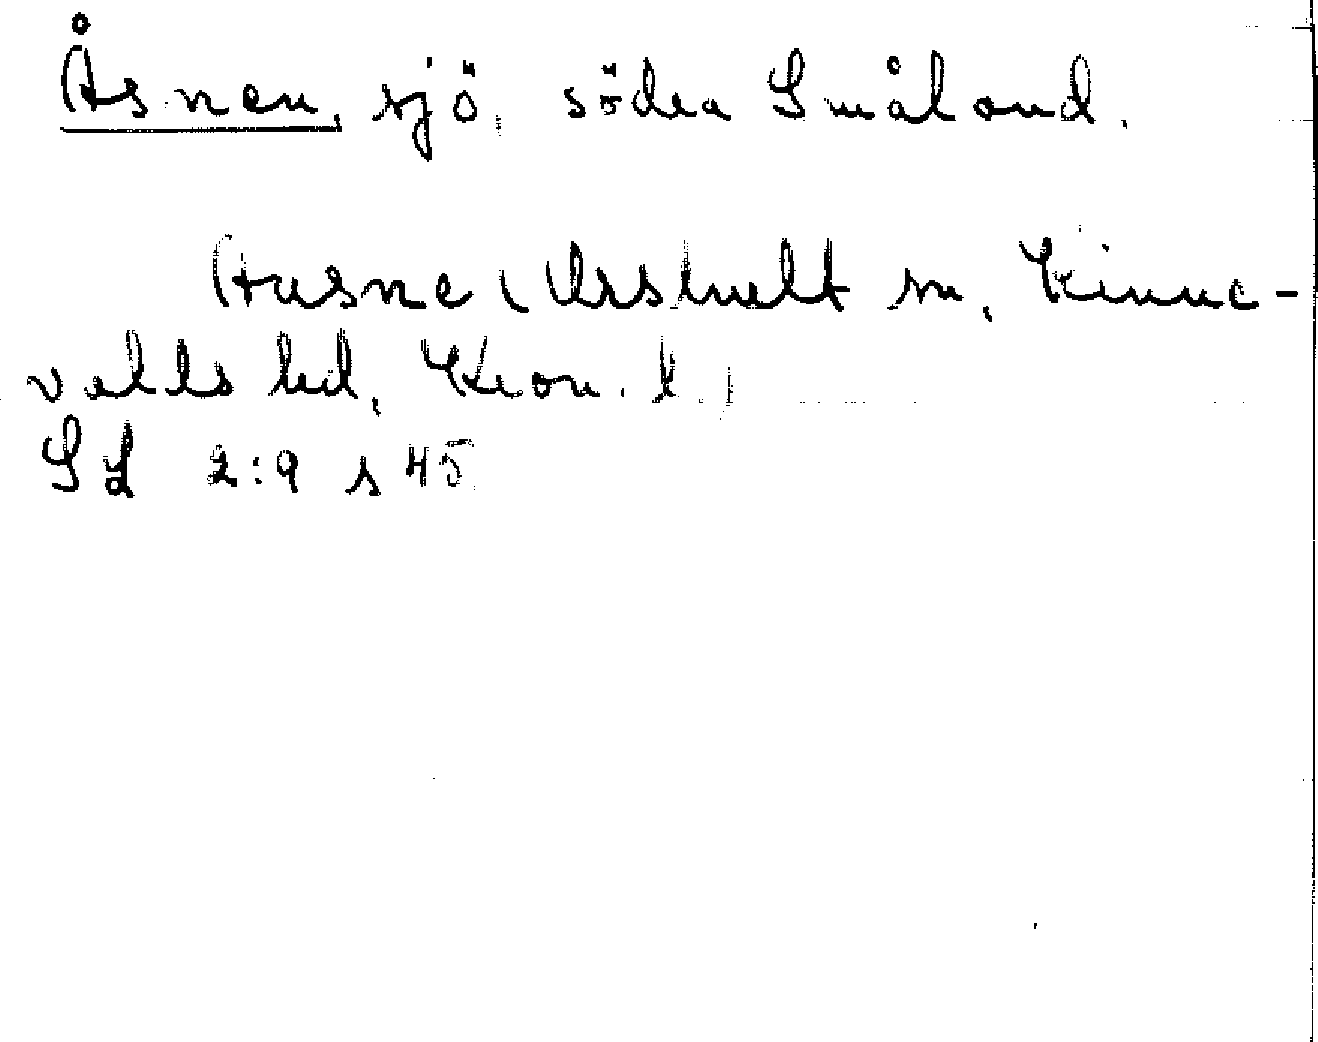 Åsnen, sjö, södra Småland.
Ausne (Urshult sn, Kinne-
valds hd, Kron. l.)
SL 2:9 s 45